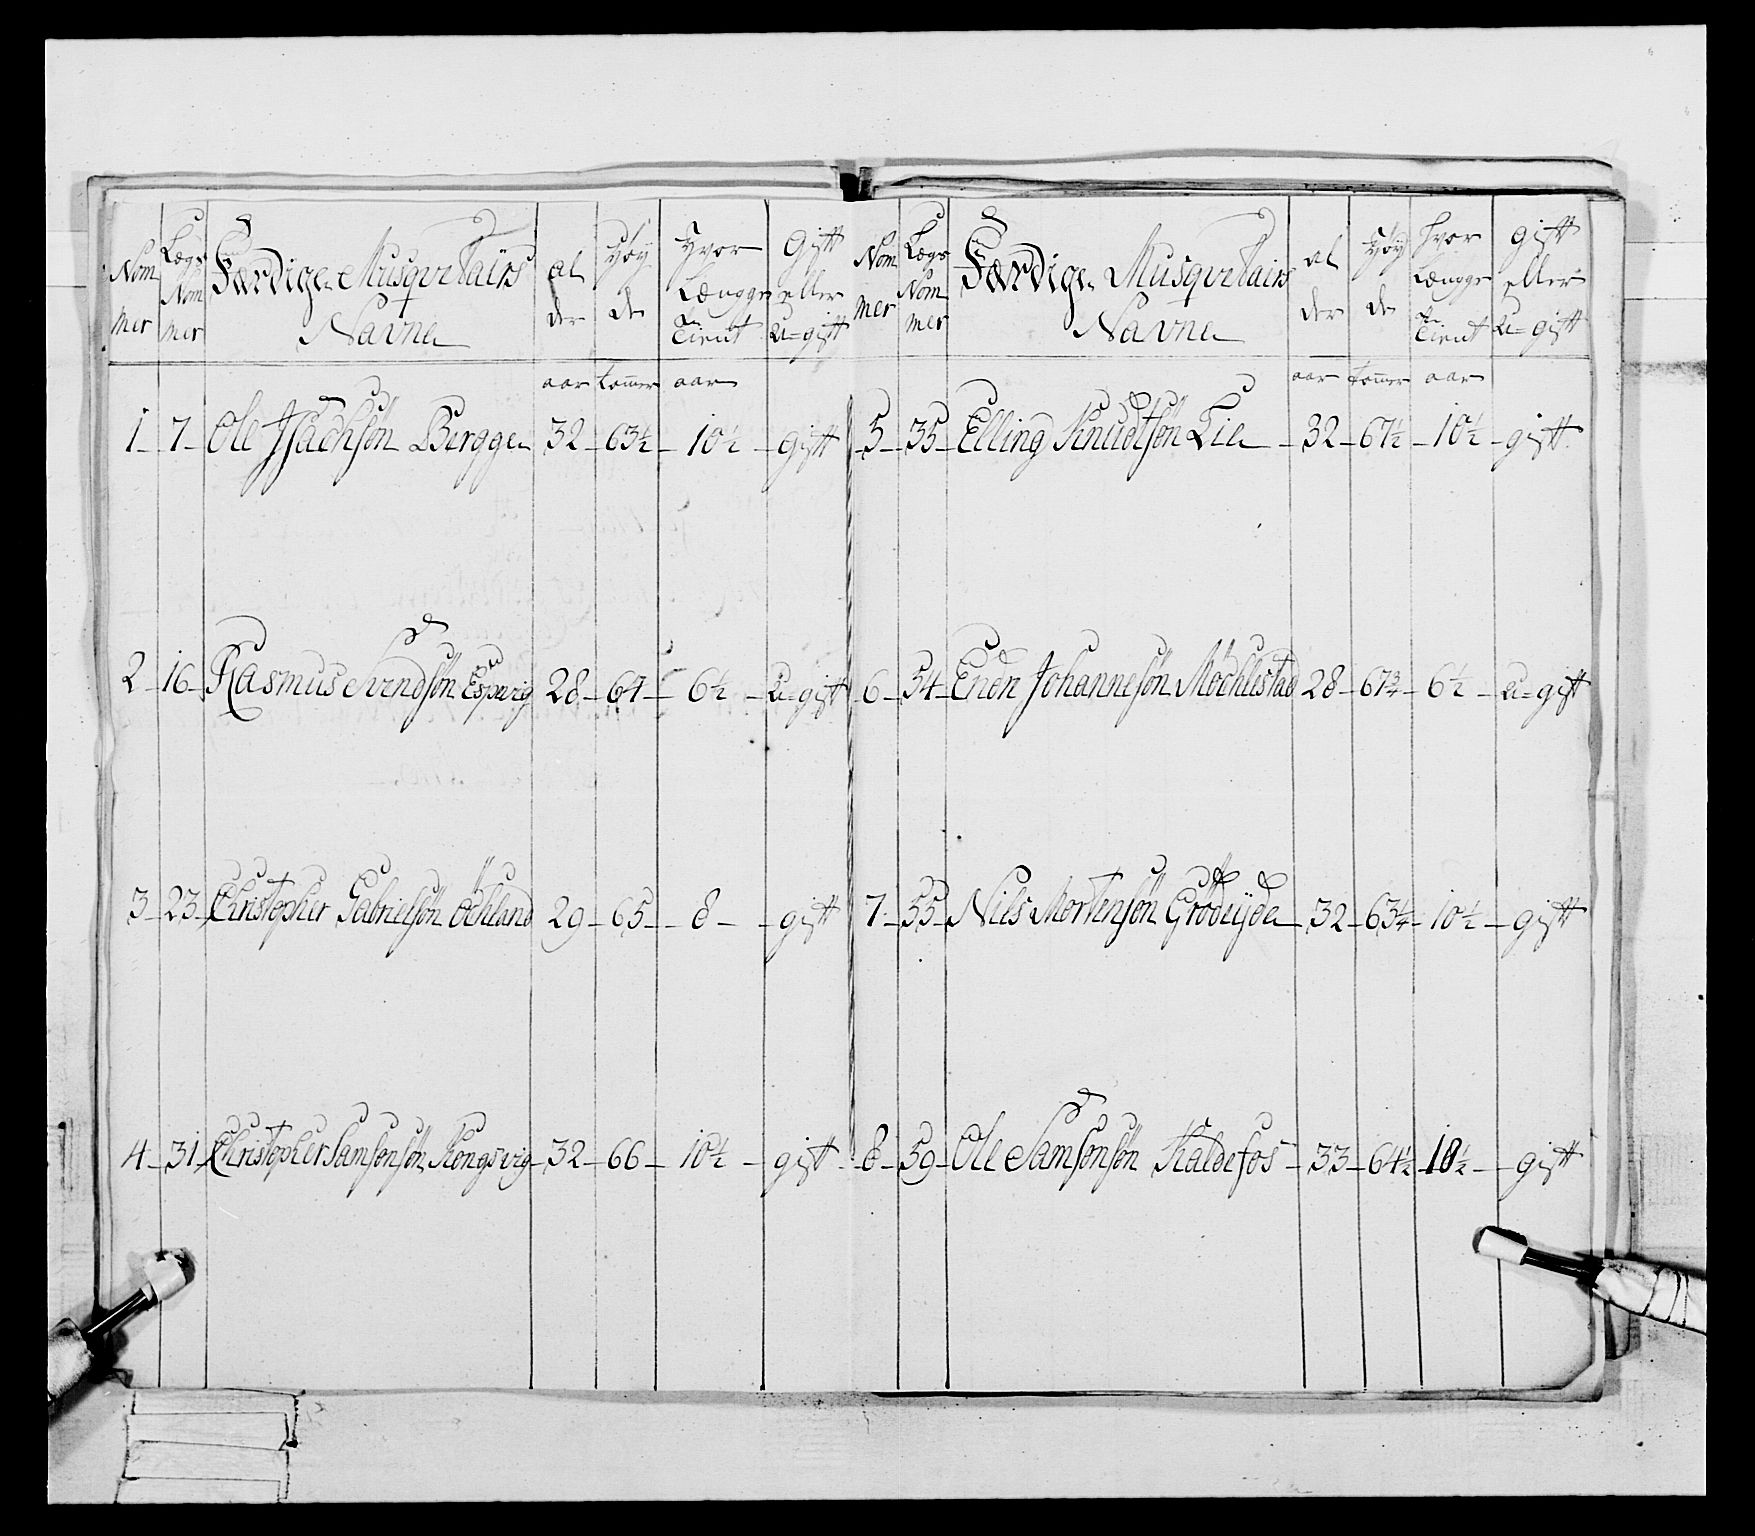 Nom mer | Lægs Nom mer | Færdige Musqvetairs Navne | al der | Høy de | Hvor Længge Tient | Gift eller U=gift
aar | tomer | aar
1 – 7 – Ole Jsachsøn Bergge 32 – 63½ – 10½ – gift
2 – 16 – Rasmus Svendsøn Espevig 28 – 64 – 6½ – U=gift
3 – 23 – Christopher Gabrielsøn Øchland 29 – 65 – 8 – gift
4 – 31 – Christopher Samsonsøn Kongsvig 32 – 66 – 10½ – gift
Nom mer | Lægs Nom mer | Færdige Musqvetairs Navne | al der | Høy de | hvor Længge Tient | gift eller U=gift
aar | tomer | aar
5 – 35 – Elling Knudtsøn Lie – 32 – 67½ – 10½ – gift
6 – 54 – Johannesøn Møchlestad 28 – 67¾ – 6½ – U=gift
7 – 55 – Niels Mortensøn 32 – 63¼ – 10½ – gift
8 – 59 – Ole Samsonsøn Kaldefos – 33 – 64½ – 10½ – gift